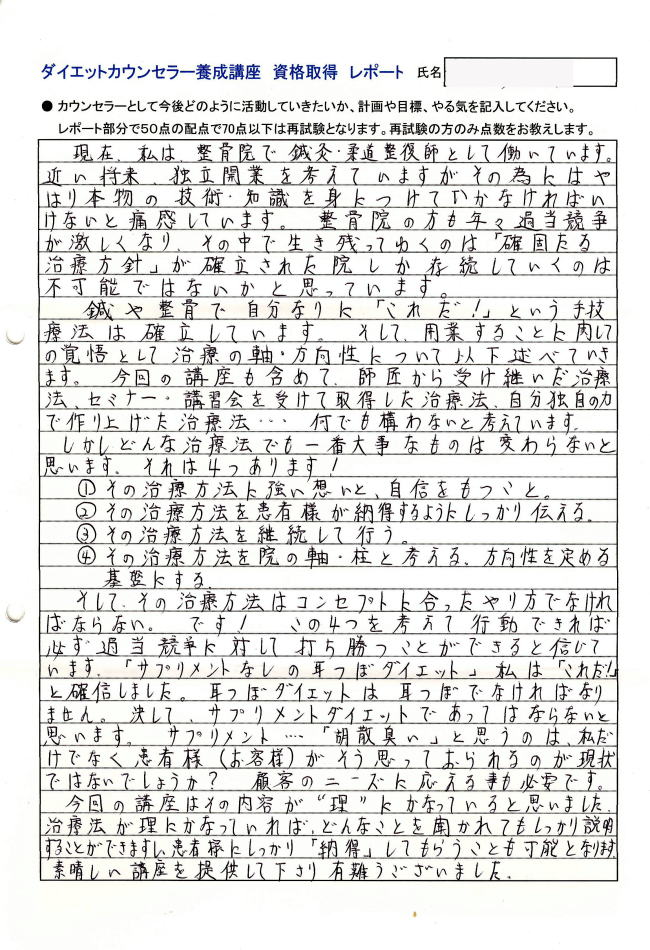 ダイエットカウンセラー養成講座 資格取得 レポート 氏名
● カウンセラーとして今後どのように活動していきたいか、計画や目標、やる気を記入してください。
レポート部分で50点の配点で70点以下は再試験となります。再試験の方のみ点数をお教えします。
現在、私は、整骨院で鍼灸・柔道整復師として働いています。
近い将来、独立開業を考えていますがその為にはや
はり本物の技術・知識を身につけていかなければい
けないと痛感しています。 整骨院の方も年々過当競争
が激しくなり、その中で生き残ってゆくのは「確固たる
治療方針」が確立された院しか存続していくのは
不可能ではないかと思っています。
鍼や整骨で自分なりに「これだ!」という手技
療法は確立しています。 そして、開業することに関して
の覚悟として治療の軸・方向性について以下述べていき
ます。 今回の講座も含めて、師匠から受け継いだ治療
法、セミナー・講習会を受けて取得した治療法、自分独自の力
で作り上げた治療法… 何でも構わないと考えています。
しかしどんな治療法でも一番大事なものは変わらないと
思います。それは4つあります!
① その治療方法に強い想いと、自信をもつこと。
② その治療方法を患者様が納得するようにしっかり伝える。
③ その治療方法を継続して行う。
④ その治療方法を院の軸・柱と考える、方向性を定める
基盤にする。
そして、その治療方法はコンセプトに合ったやり方でなけれ
ばならない。 です! この4つを考えて行動できれば
必ず過当競争に対して打ち勝つことができると信じて
います。「サプリメントなしの耳つぼダイエット」私は「これだ!」
と確信しました。耳つぼダイエットは耳つぼでなければなり
ません。決して、サプリメントダイエットであってはならないと
思います。 サプリメント…「胡散臭い」と思うのは、私だ
けでなく患者様(お客様)がそう思っておられるのが現状
ではないでしょうか? 顧客のニーズに応える事も必要です。
今回の講座はその内容が“理”にかなっていると思いました。
治療法が理にかなっていれば、どんなことを聞かれてもしっかり説明
することができますし、患者様にしっかり「納得」してもらうことも可能となります。
素晴しい講座を提供して下さり有難うございました。